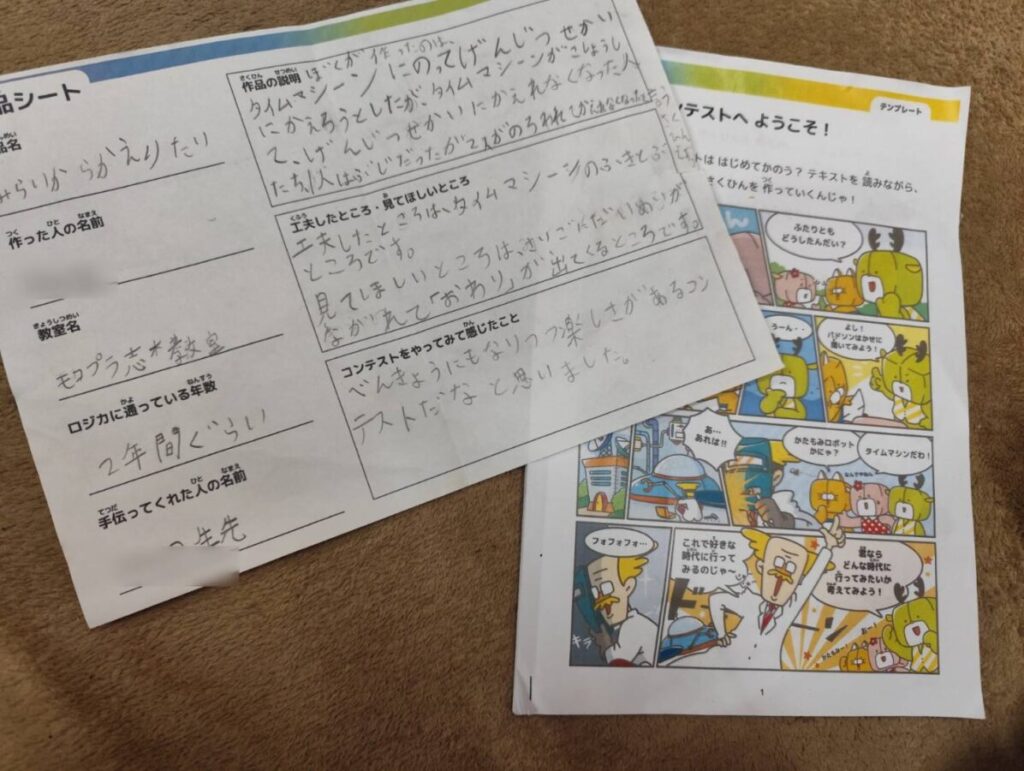 品シート
みらいからかえりたい
つく ひと なまえ
作った人の名前
きょうしつめい
教室名
モカプラ志木教室
かよ ねんすう
ロジカに通っている年数
2年間ぐらい
てつだ ひと なまえ
手伝ってくれた人の名前
先生
さくひん せつめい
作品の説明
ぼくが作ったのは、
タイムマシーンにのってげんじつせかい
にかえろうとしたが、タイムマシーンがこしょうし
て、げんじつせかいにかえれなくなった人
たち、1人はぶじだったが2人が
くふう み
工夫したところ・見てほしいところ
工夫したところは、タイムマシーンの
ところです。
見てほしいところは、
ながれて「おわり」が出てくるところです。
かん
コンテストをやってみて感じたこと
べんきょうにもなりつつ楽しさがあるコン
テストだなと思いました。
テンプレート
ンテストへ ようこそ!
ストは はじめてかのう?テキストを 読みながら、
さくひんを 作っていくんじゃ!
ふたりとも
どうしたんだい?
うーん・・
よし!
パドソンはかせに
聞いてみよう!
あ…
あれは!!
かたもみロボット
かにゃ?
タイムマシンだわ!
フォフォフォ…
キラ
これで好きな
時代に行って
みるのじゃ〜
君なら
どんな時代に
行ってみたいか
考えてみよう!
おー!
1